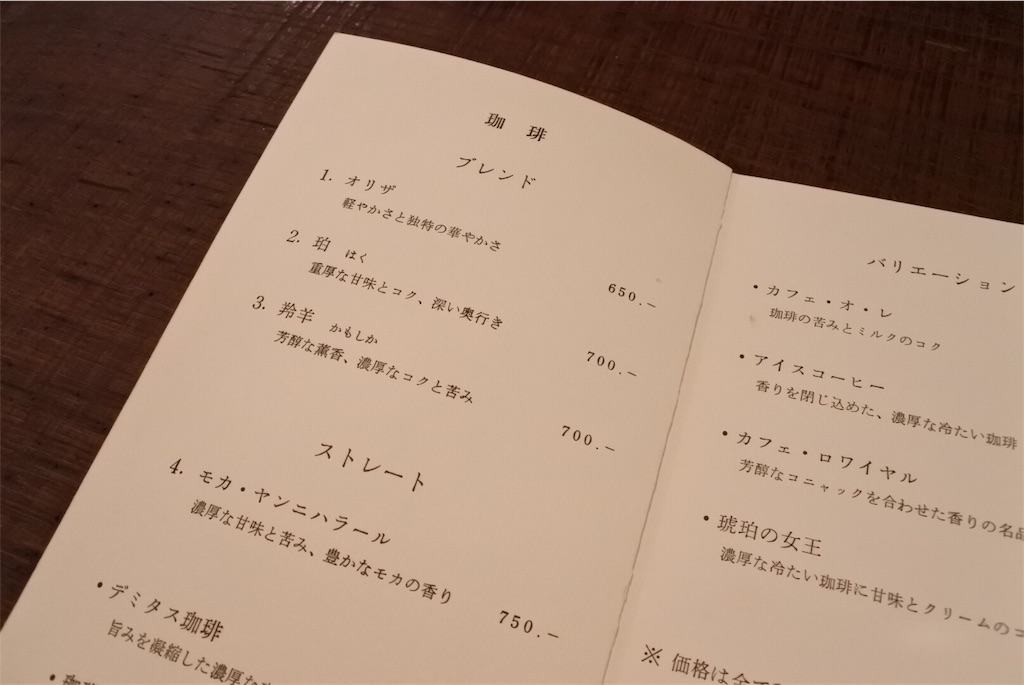 珈 琲
ブレンド
1. オリザ
軽やかさと独特の華やかさ
650.–
2. 珀 はく
重厚な甘味とコク、深い奥行き
700.–
3. 羚羊 かもしか
芳醇な薫香、濃厚なコクと苦み
700.–
ストレート
4. モカ・ヤンニハラール
濃厚な甘味と苦み、豊かなモカの香り
750.–
・デミタス珈琲
旨みを凝縮した濃厚な
・珈
バリエーション
・カフェ・オ・レ
珈琲の苦みとミルクのコク
・アイスコーヒー
香りを閉じ込めた、濃厚な冷たい珈琲
・カフェ・ロワイヤル
芳醇なコニャックを合わせた香りの名品
・琥珀の女王
濃厚な冷たい珈琲に甘味とクリームのコ
※ 価格は全て